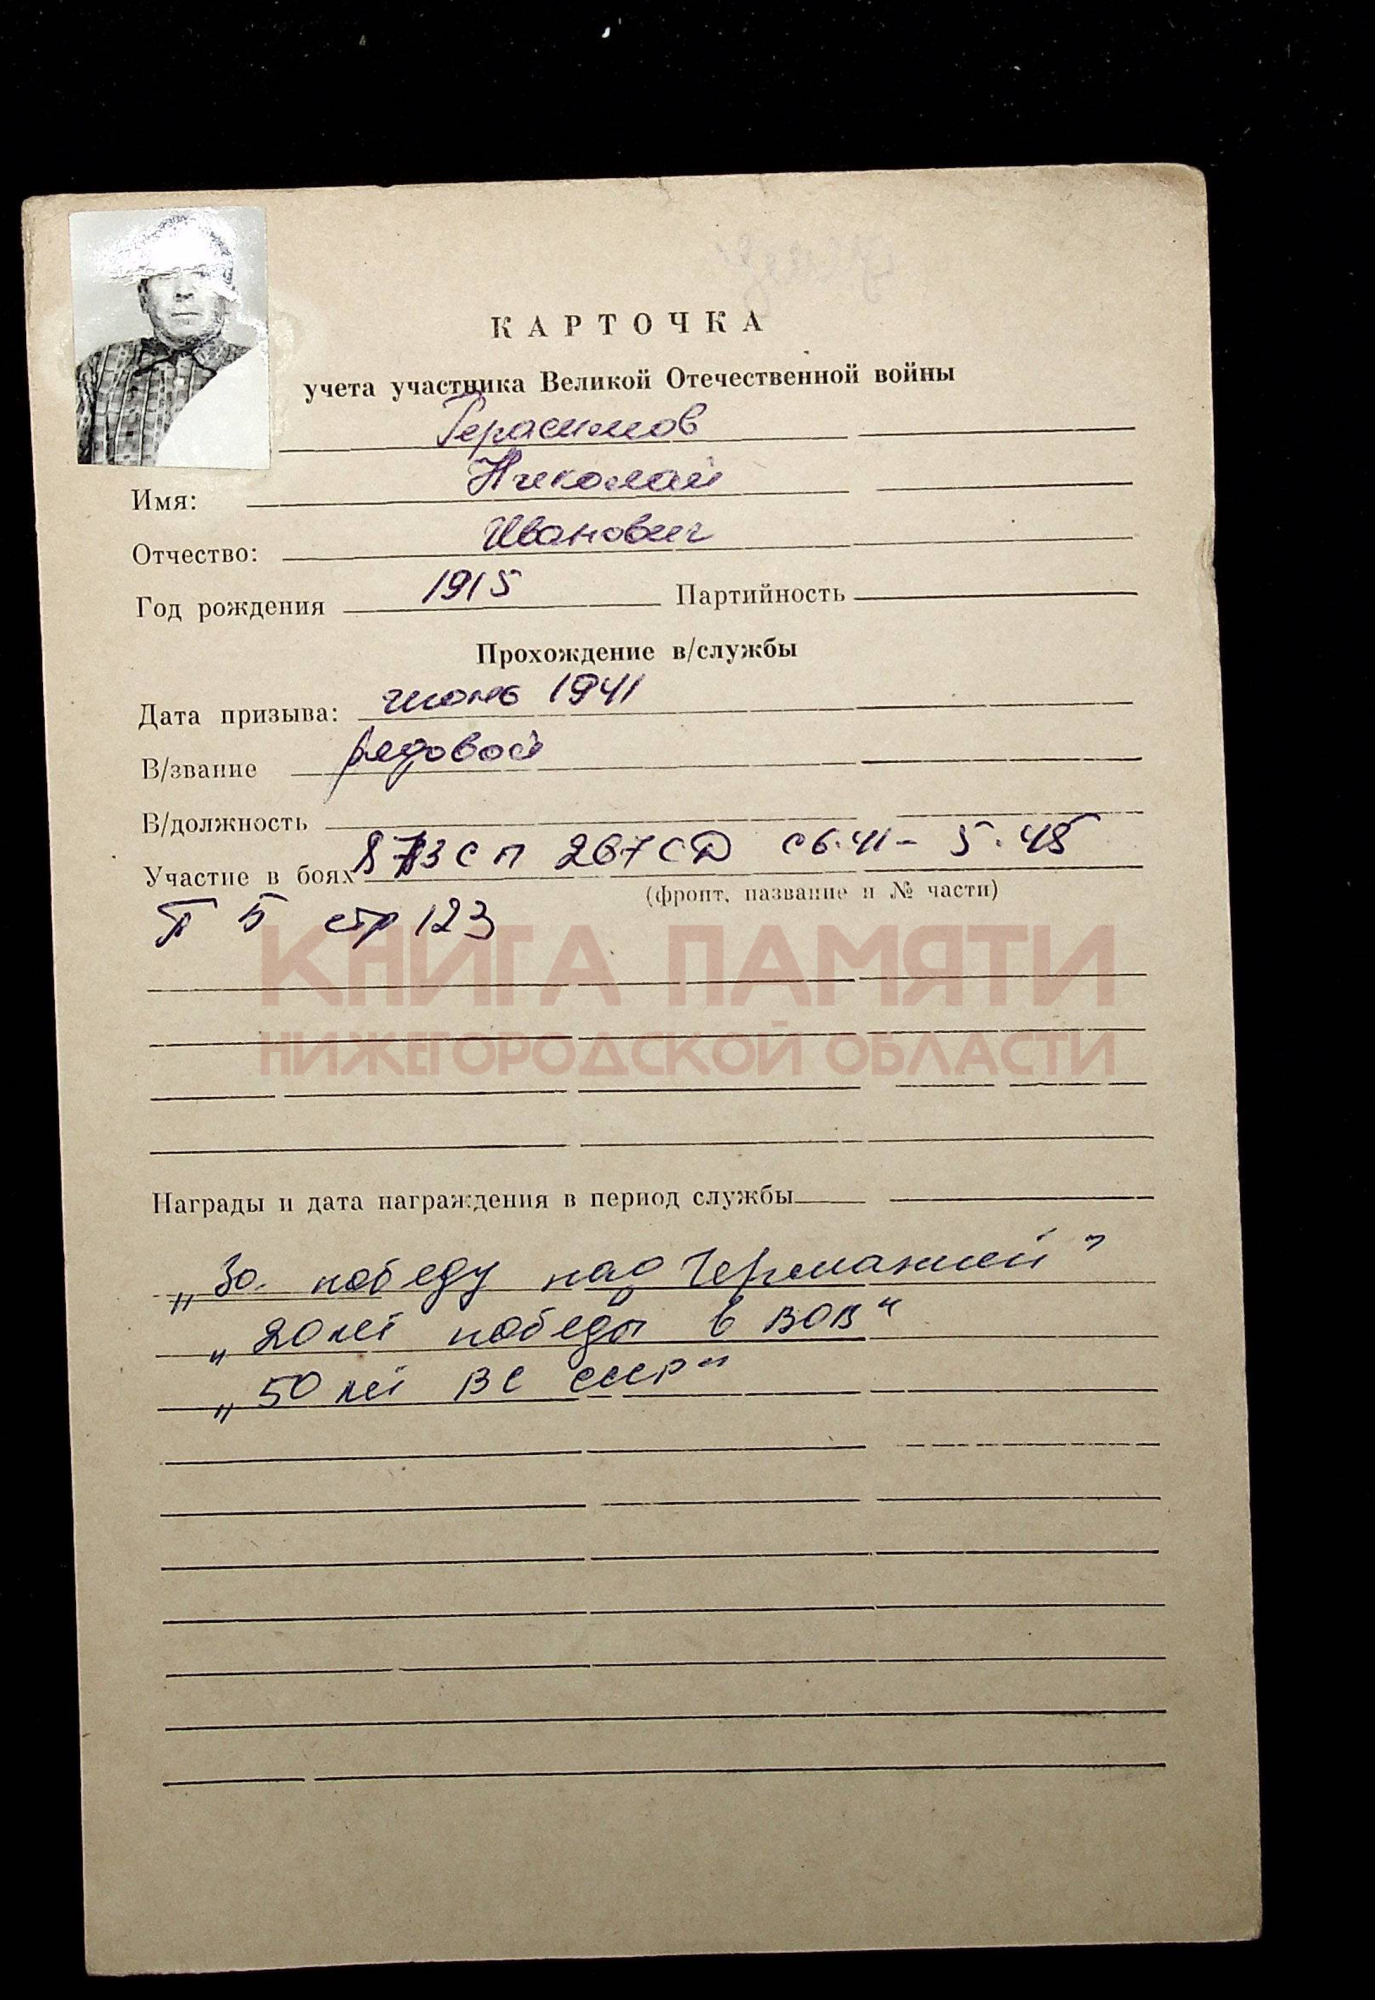 КАРТОЧКА
учета участника Великой Отечественной войны
Герасимов
Имя: Николай
Отчество: Иванович
Год рождения 1915 Партийность
Прохождение в/службы
Дата призыва: июнь 1941
В/звание рядовой
В/должность
Участие в боях 873 СП 267 СД с 6.41 - 5.45
(фронт, название и № части)
ПБ стр 123
КНИГА ПАМЯТИ
НИЖЕГОРОДСКОЙ ОБЛАСТИ
Награды и дата награждения в период службы
„За победу над Германией"
„20 лет победы в ВОВ"
„50 лет ВС СССР"